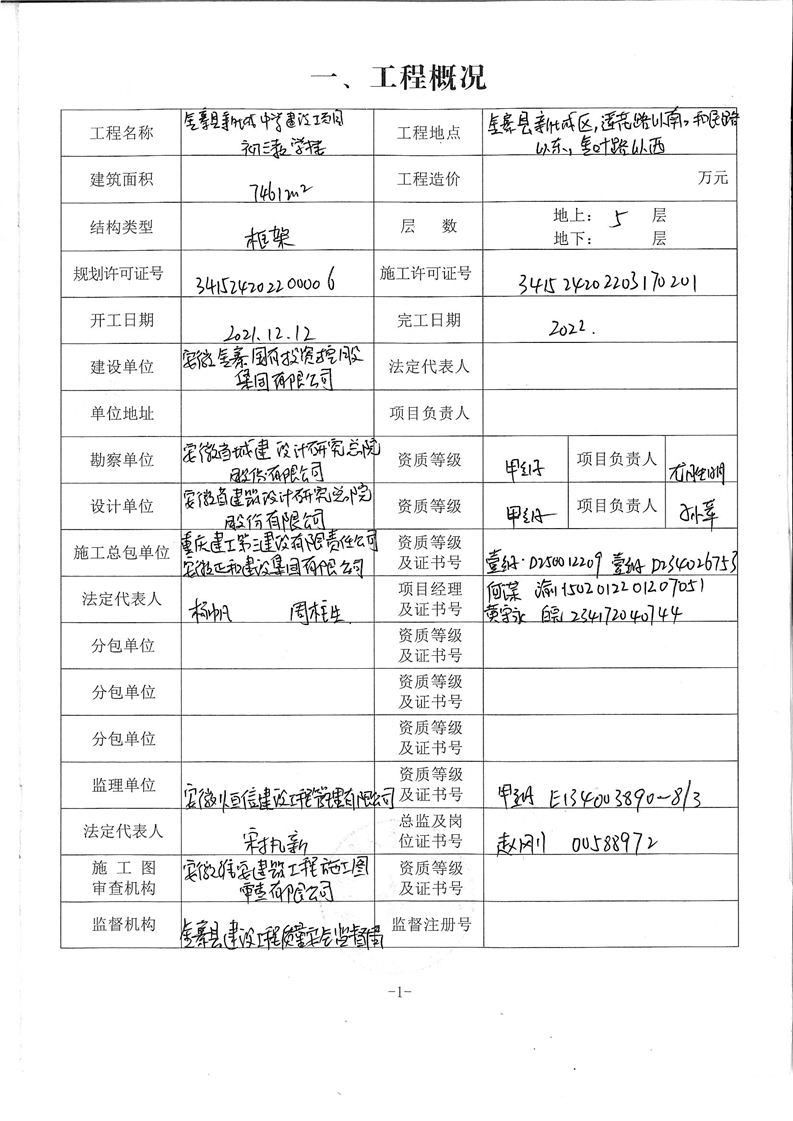 一、工程概况
工程名称 金寨县新城中学建设项目 初三教学楼 工程地点 金寨县新城区，莲花路以南，和民路以东，金叶路以西
建筑面积 7461m² 工程造价 万元
结构类型 框架 层 数 地上：5 层 地下： 层
规划许可证号 341524202200006 施工许可证号 341524202203170201
开工日期 2021.12.12 完工日期 2022.
建设单位 安徽金寨国有投资控股集团有限公司 法定代表人
单位地址 项目负责人
勘察单位 安徽省城建设计研究总院股份有限公司 资质等级 甲级 项目负责人
设计单位 安徽省建筑设计研究总院股份有限公司 资质等级 甲级 项目负责人 孙苹
施工总包单位 重庆建工第三建设有限责任公司 安徽正和建设集团有限公司 资质等级及证书号 壹级·D250012209 壹级D234026753
法定代表人 杨帆 周柱生 项目经理及证书号 何某 渝1502012201207051 黄宗永 皖234172040744
分包单位 资质等级及证书号
分包单位 资质等级及证书号
分包单位 资质等级及证书号
监理单位 安徽恒信建设工程管理有限公司 资质等级及证书号 甲级 E134003890-8/3
法定代表人 宋执新 总监及岗位证书号 赵刚 00588972
施工图审查机构 安徽建筑工程施工图审查有限公司 资质等级及证书号
监督机构 金寨县建设工程质量安全监督站 监督注册号
-1-